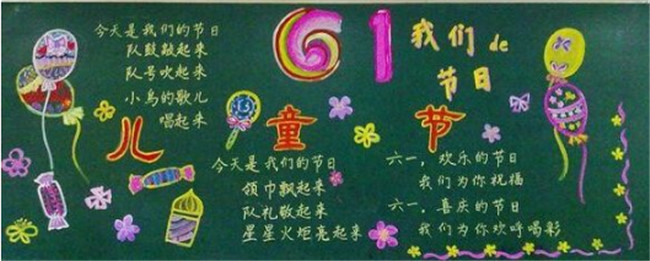 今天是我们的节日
队鼓敲起来
队号吹起来
小鸟的歌儿
唱起来
61
我们de
节日
儿童节
今天是我们的节日
领巾飘起来
队礼敬起来
星星火炬亮起来
六一，欢乐的节日
我们为你祝福
六一，喜庆的节日
我们为你欢呼喝彩